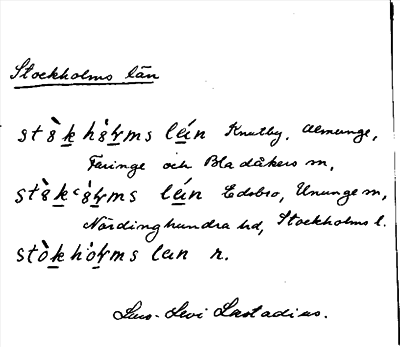 Stockholms län
stòkhòlms lä́n Knutby, Almunge,
Faringe och Bladåkers sn,
lä́n Edsbro, Ununge sn,
Närdinghundra hd, Stockholms l.
stòkhòlms län n.
Lars-Levi Læstadius.